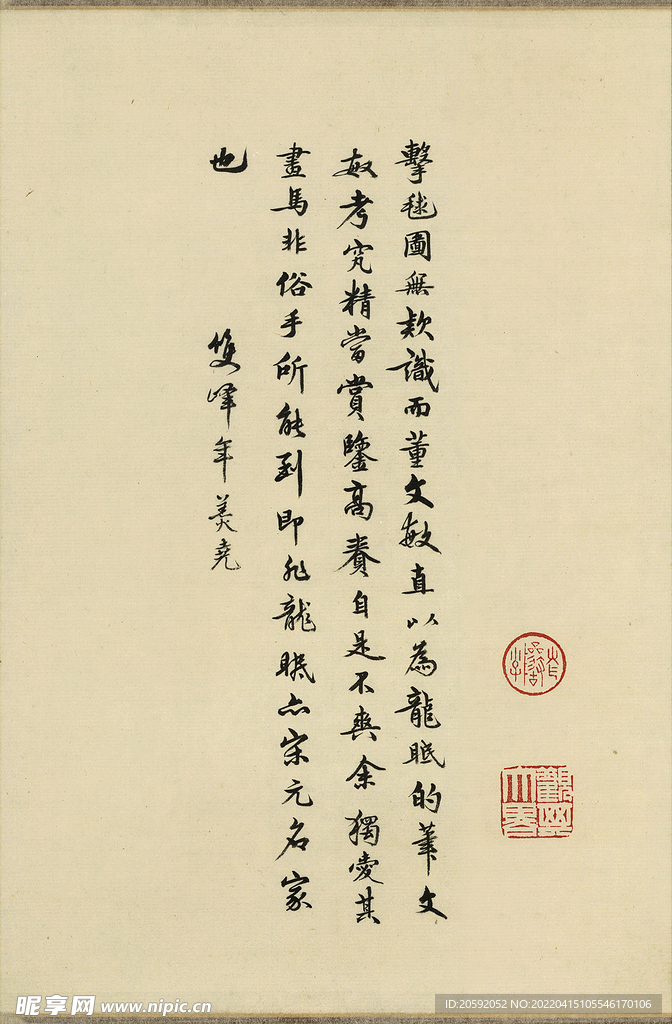 擊毬圖無款識而董文敏直以為龍眠的筆文
敏考究精當賞鑒高賽自是不爽余獨愛其
畫馬非俗手所能到即非龍眠亦宋元名家
也
雙峰年羹堯
昵享网 www.nipic.cn
ID:20592052 NO:20220415105546170106